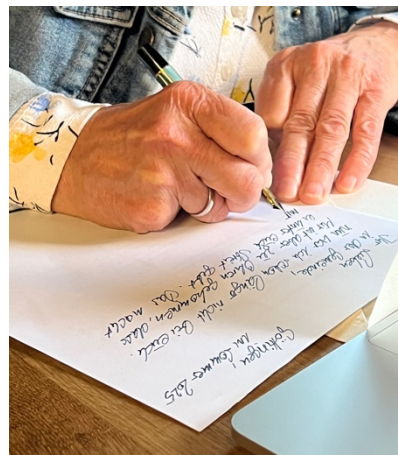 Göttingen,
im Sommer 2025
Ihr Lieben
in der Gemeinde,
nun bin ich schon länger nicht bei euch
Mir ist aber zu Ohren gekommen, dass
es unter euch Streit gibt. Das macht
mir